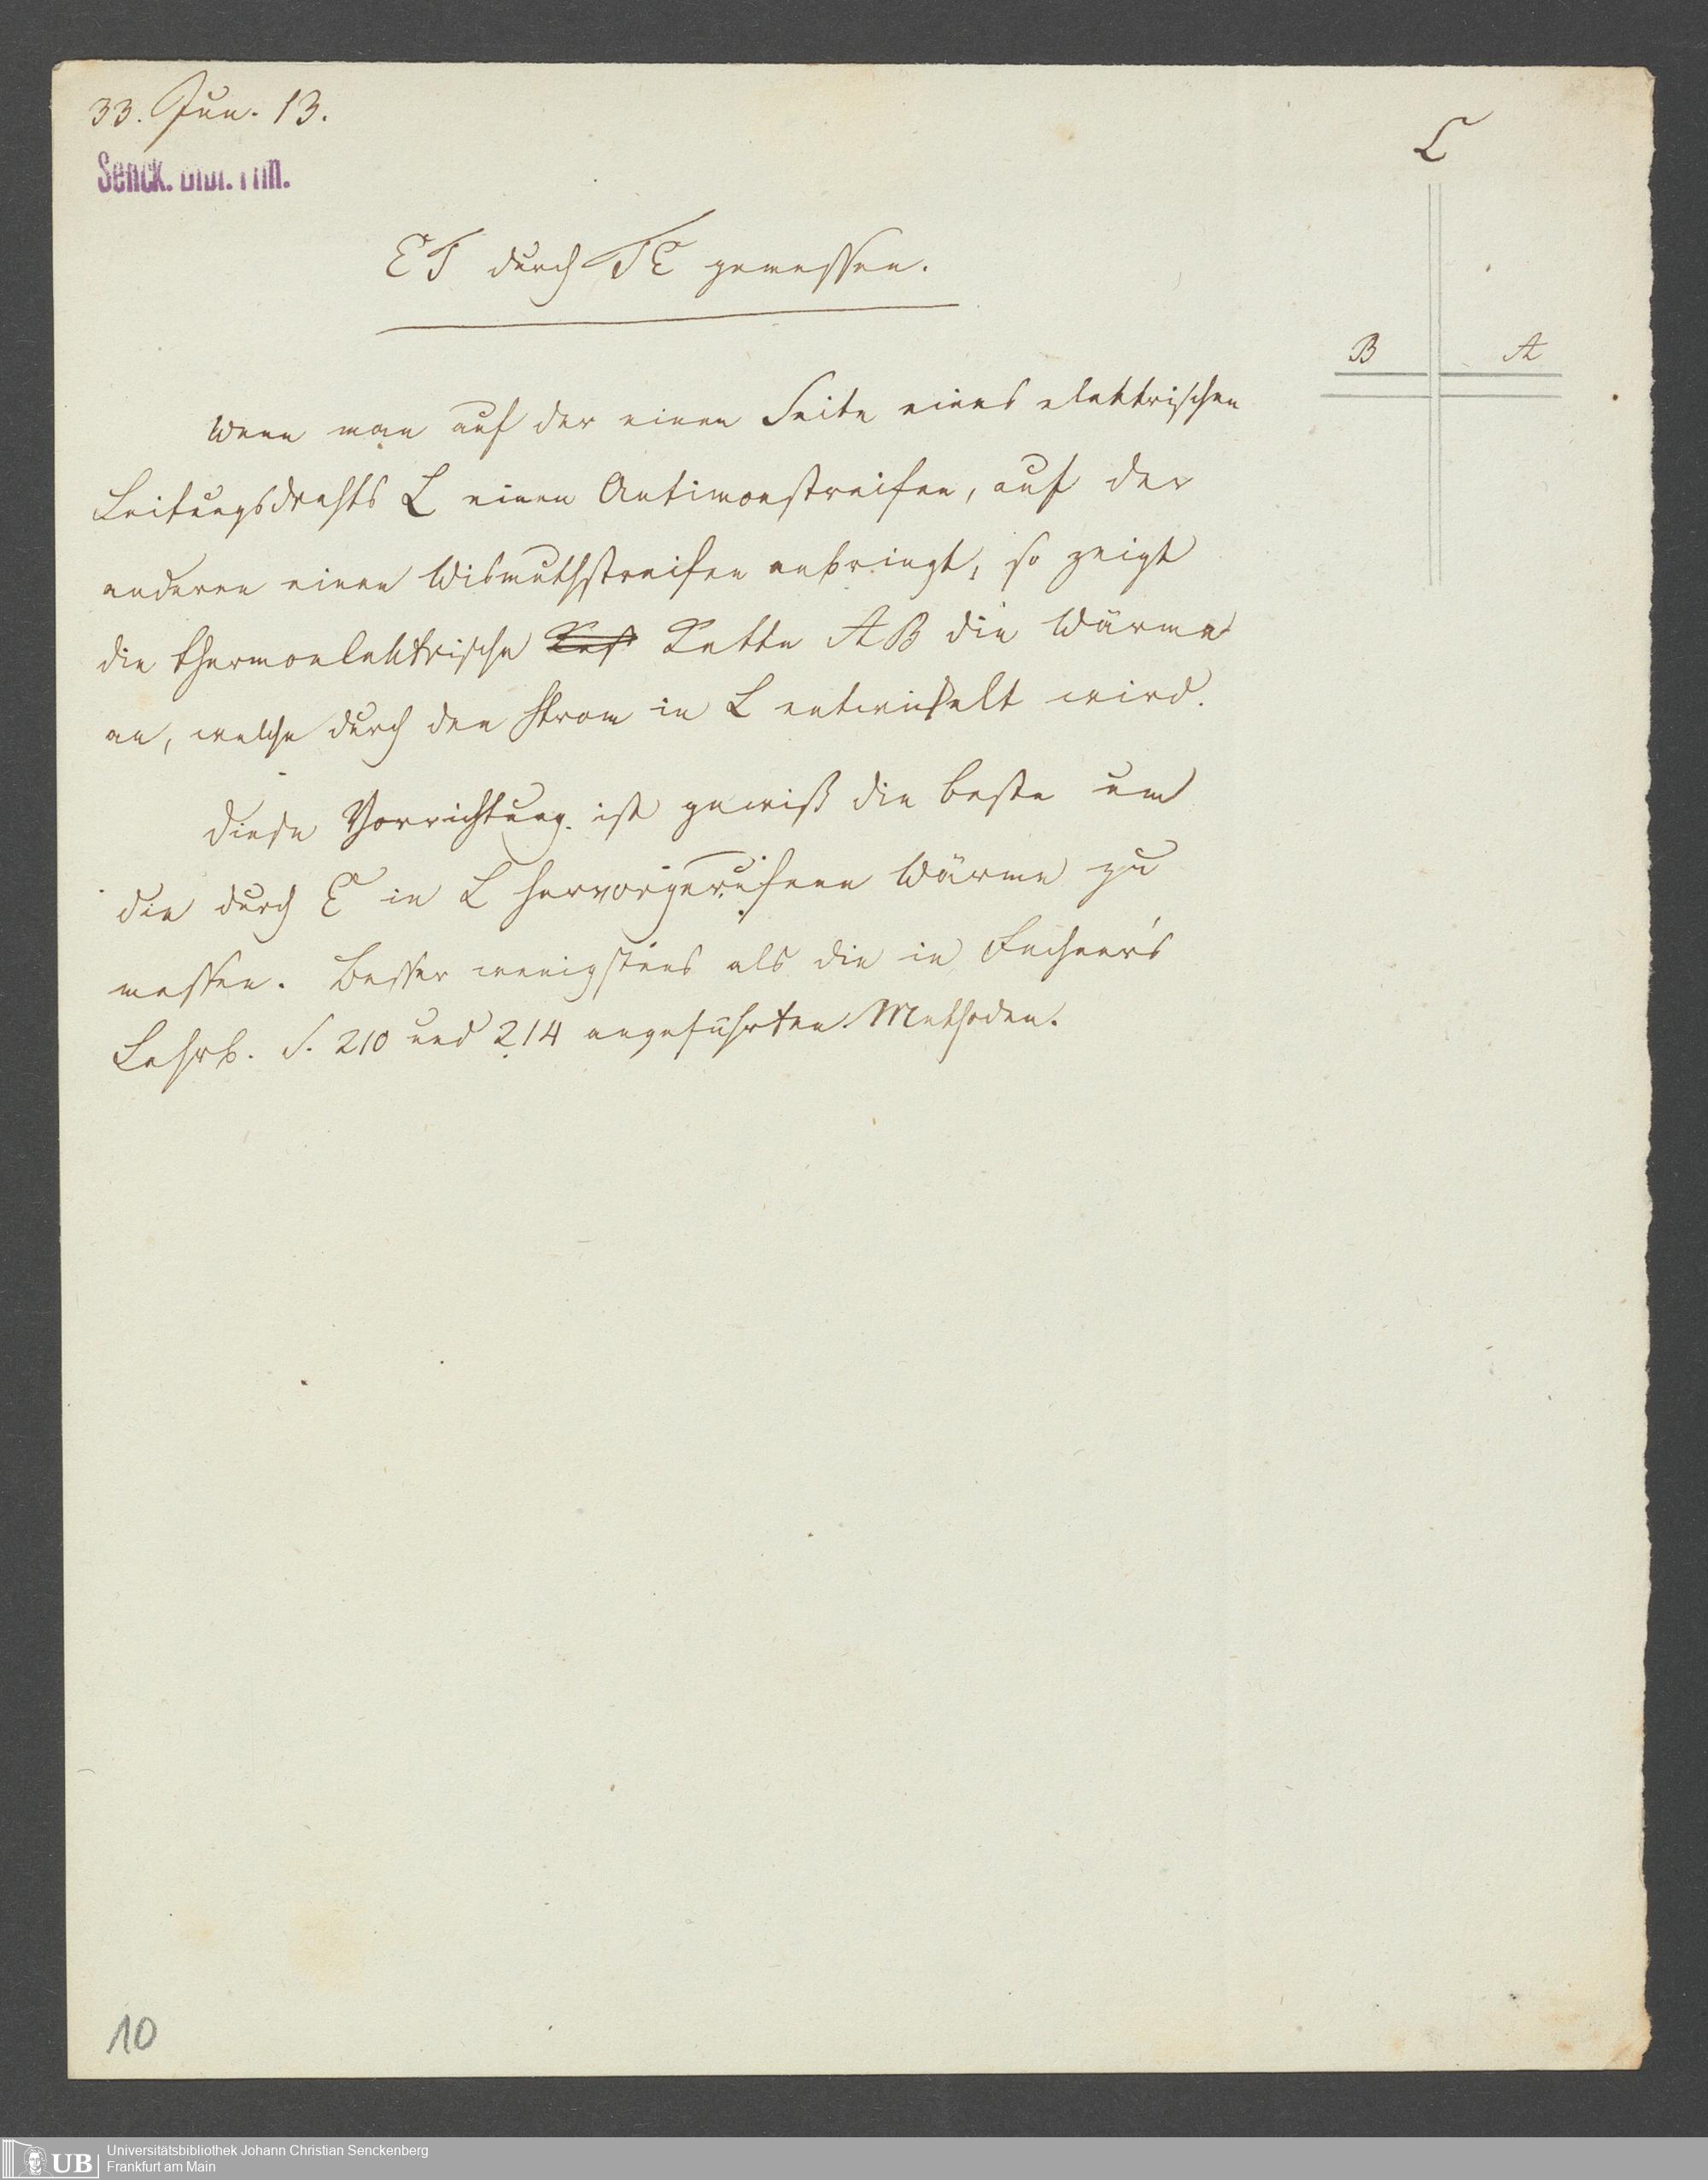 33. Jun. 13.
Senck. Bibl. Ffm.
L
ET durch TE gemessen.
B A
Wenn man auf der einen Seite eines elektrischen
Leitungsdrahts L einen Antimonstreifen, auf der
anderen einen Wismuthstreifen anbringt, so zeigt
die thermoelektrische Kette AB die Wärme
an, welche durch den Strom in L entwickelt wird.
Diese Vorrichtung ist gewiß die beste um
die durch E in L hervorgerufene Wärme zu
messen. Besser wenigstens als die in Fechner's
Lehrb. S. 210 und 214 angeführten Methoden.
10
UB Universitätsbibliothek Johann Christian Senckenberg
Frankfurt am Main